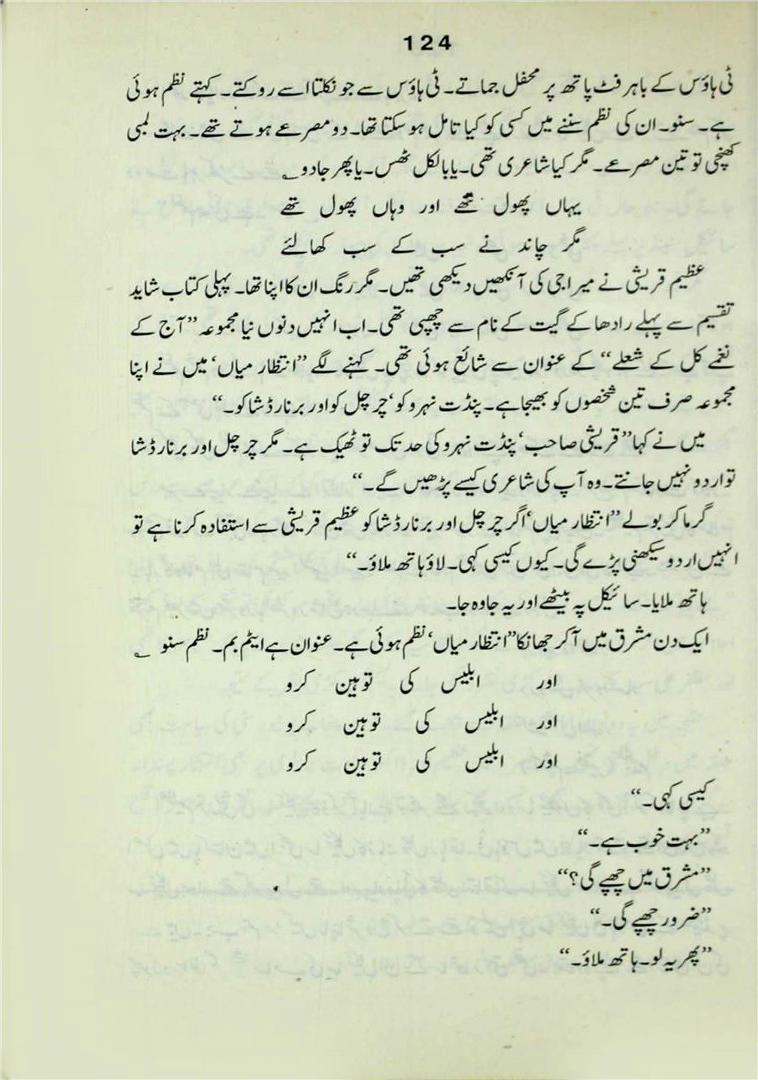 124
ٹی ہاؤس کے باہر فٹ پاتھ پر محفل جماتے۔ ٹی ہاؤس سے جو نکلتا اسے روکتے۔ کہتے نظم ہوئی
ہے۔ سنو۔ ان کی نظم سننے میں کسی کو کیا تامل ہو سکتا تھا۔ دو مصرعے ہوتے تھے۔ بہت لمبی
کھنچی تو تین مصرعے۔ مگر کیا شاعری تھی۔ یا بالکل ٹھس۔ یا پھر جادو ؎
یہاں پھول تھے اور وہاں پھول تھے
مگر چاند نے سب کے سب کھا لئے
عظیم قریشی نے میرا جی کی آنکھیں دیکھی تھیں۔ مگر رنگ ان کا اپنا تھا۔ پہلی کتاب شاید
تقسیم سے پہلے رادھا کے گیت کے نام سے چھپی تھی۔ اب انہیں دنوں نیا مجموعہ ”آج کے
نغمے کل کے شعلے“ کے عنوان سے شائع ہوئی تھی۔ کہنے لگے ”انتظار میاں‘ میں نے اپنا
مجموعہ صرف تین شخصوں کو بھیجا ہے۔ پنڈت نہرو کو‘ چرچل کو اور برنارڈ شا کو۔“
میں نے کہا ”قریشی صاحب‘ پنڈت نہرو کی حد تک تو ٹھیک ہے۔ مگر چرچل اور برنارڈ شا
تو اردو نہیں جانتے۔ وہ آپ کی شاعری کیسے پڑھیں گے۔“
گرما کر بولے ”انتظار میاں‘ اگر چرچل اور برنارڈ شا کو عظیم قریشی سے استفادہ کرنا ہے تو
انہیں اردو سیکھنی پڑے گی۔ کیوں کیسی کہی۔ لاؤ ہاتھ ملاؤ۔“
ہاتھ ملایا۔ سائیکل پہ بیٹھے اور یہ جا وہ جا۔
ایک دن مشرق میں آ کر جھانکا ”انتظار میاں‘ نظم ہوئی ہے۔ عنوان ہے ایٹم بم۔ نظم سنو ؎
اور ابلیس کی توہین کرو
اور ابلیس کی توہین کرو
اور ابلیس کی توہین کرو
کیسی کہی۔“
”بہت خوب ہے۔“
”مشرق میں چھپے گی؟“
”ضرور چھپے گی۔“
”پھر یہ لو۔ ہاتھ ملاؤ۔“